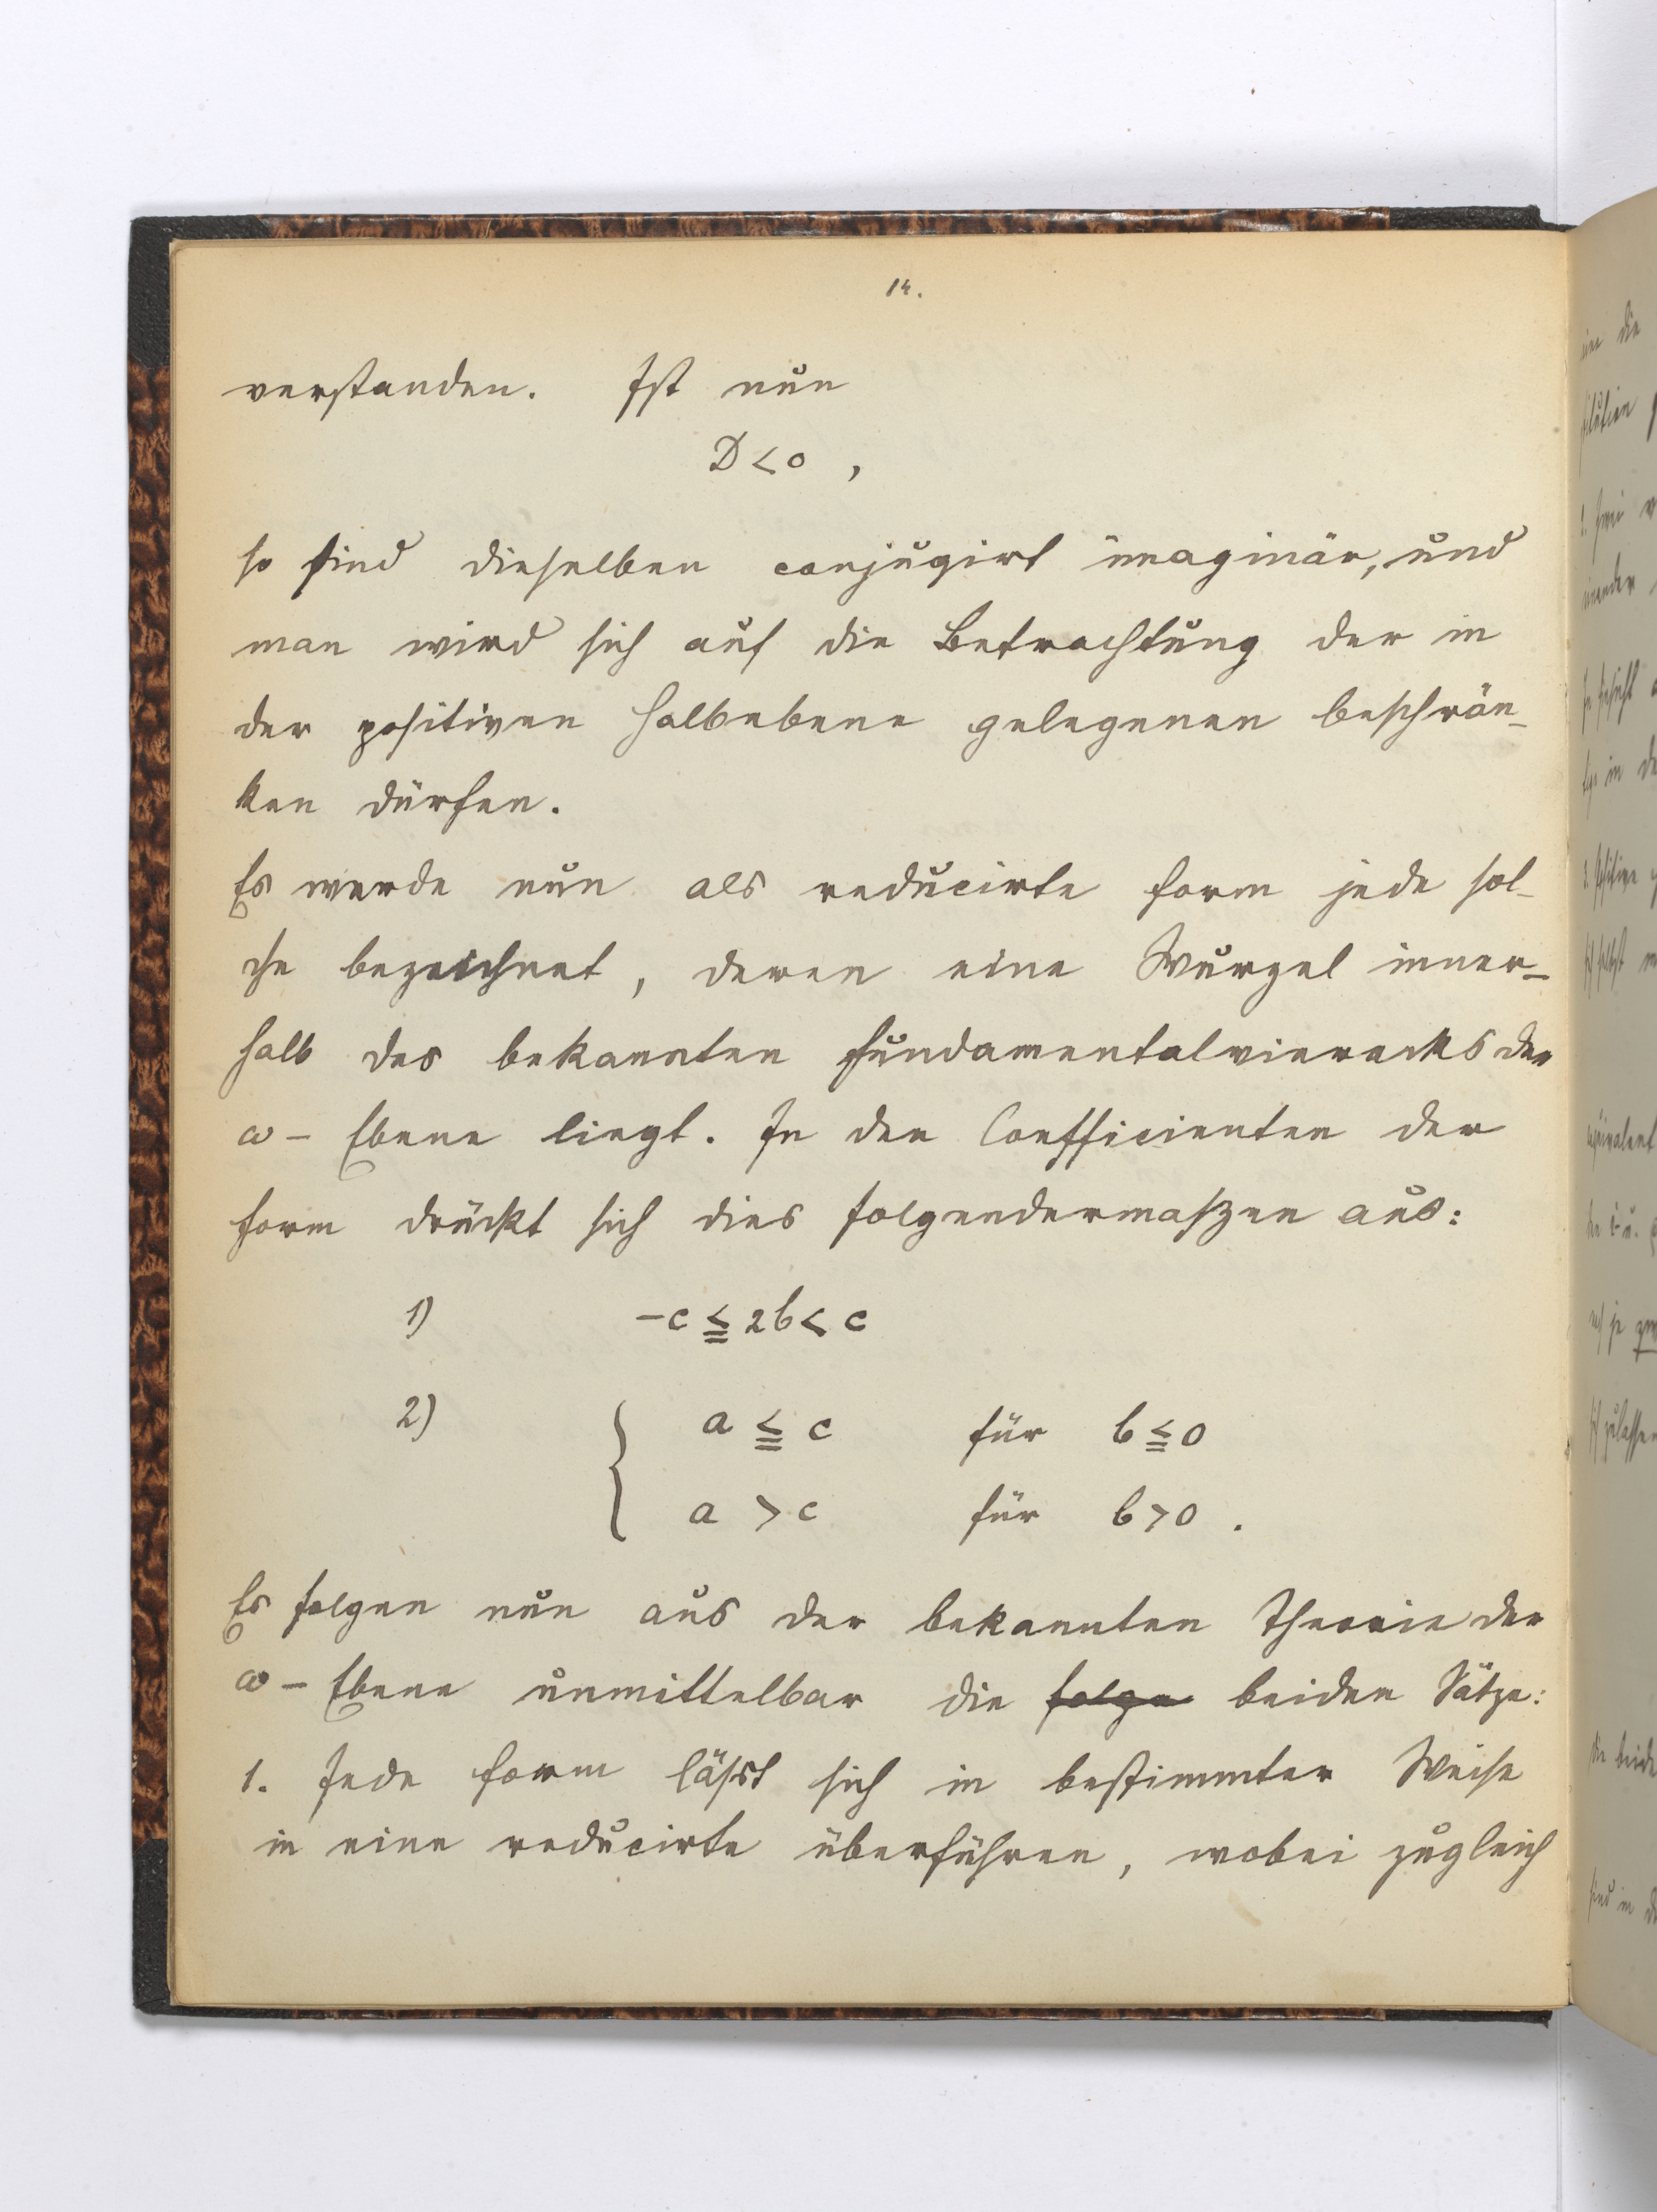 14.
verstanden. Ist nun
D < 0 ,
so sind dieselben conjugirt imaginär, und
man wird sich auf die Betrachtung der in
der positiven Halbebene gelegenen beschrän-
ken dürfen.
Es werde nun als reducirte Form jede sol-
che bezeichnet, deren eine Wurzel inner-
halb des bekannten Fundamentalvierecks der
ω - Ebene liegt. In den Coefficienten der
Form drückt sich dies folgendermaßen aus:
1) -c ≦ 2b < c
2) { a ≦ c für b ≦ 0
a > c für b > 0 .
Es folgen nun aus der bekannten Theorie der
ω - Ebene unmittelbar die folge beiden Sätze:
1. Jede Form läßt sich in bestimmter Weise
in eine reducirte überführen, wobei zugleich